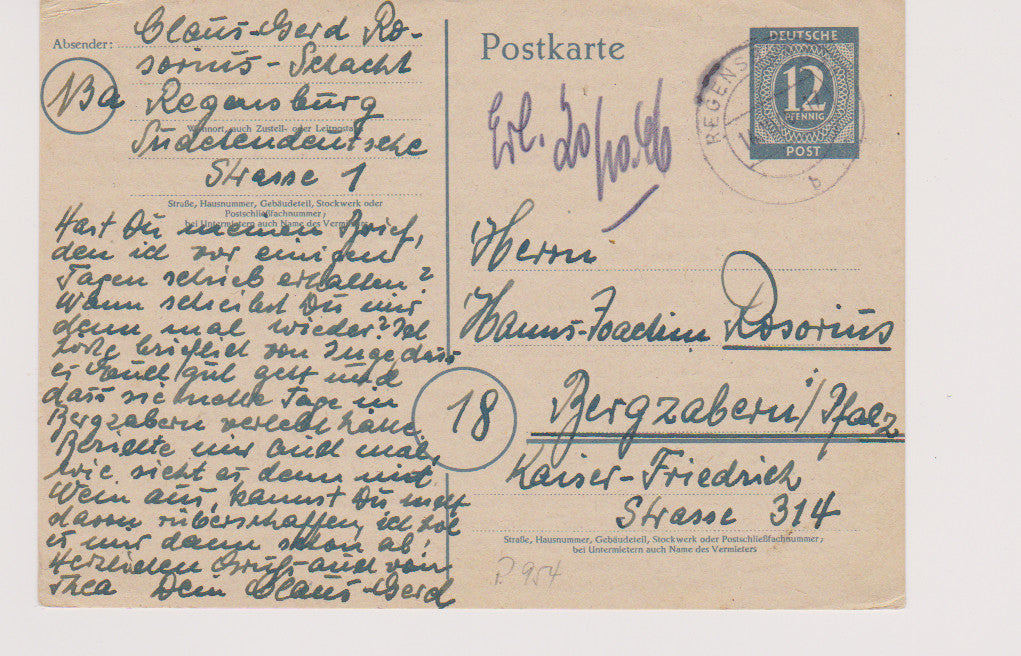 Absender: Claus-Gerd Ro-
sorius-Schacht
13a Regensburg
Wohnort, auch Zustell- oder Leitpostamt
Sudetendeutsche
Strasse 1
Straße, Hausnummer, Gebäudeteil, Stockwerk oder
Postschließfachnummer;
bei Untermietern auch Name des Vermieters
Hast Du meinen Brief,
den ich vor einigen
Tagen schrieb erhalten?
Wann schreibst Du mir
denn mal wieder? Ich
hörte brieflich von Inge, dass
es Euch gut geht und
dass sie nette Tage in
Bergzabern verlebt hätte.
Berichte mir auch mal,
wie sieht es denn mit
Wein aus, kannst Du nicht
davon rüberschaffen, ich hol
es mir dann schon ab!
Herzlichen Gruß auch von
Thea Dein Claus-Gerd
Postkarte
DEUTSCHE
12
PFENNIG
POST
REGENS
b
Erl.
Herrn
Hanns-Joachim Rosorius
18 Bergzabern/Pfalz
Kaiser-Friedrich
Strasse 314
Straße, Hausnummer, Gebäudeteil, Stockwerk oder Postschließfachnummer;
bei Untermietern auch Name des Vermieters
P 954